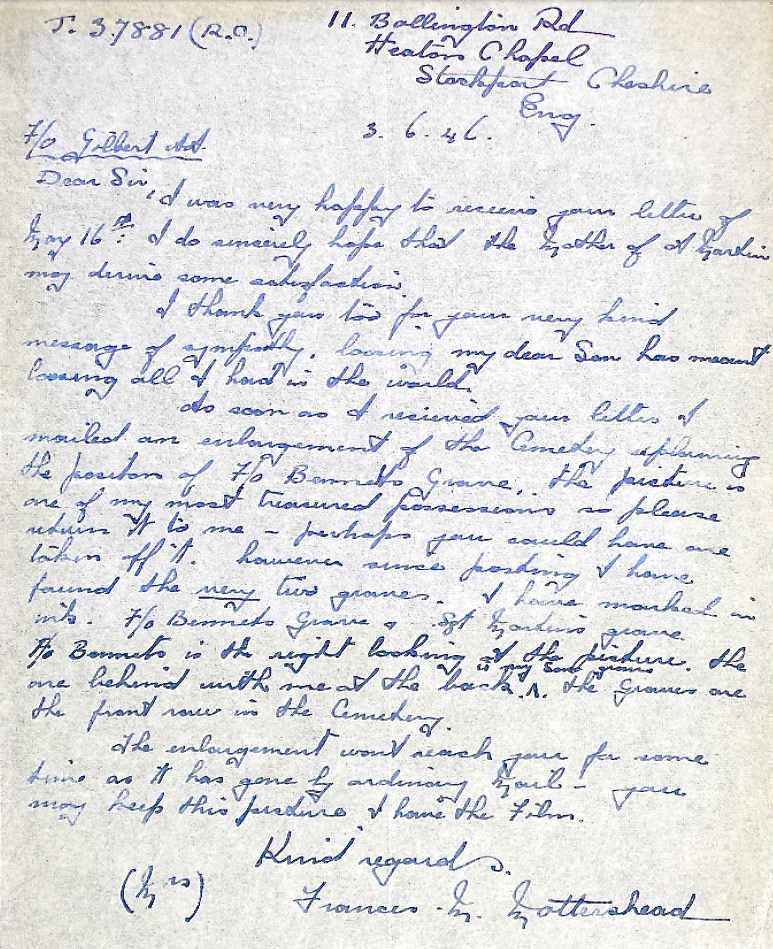 J. 37881 (R.O.)
11. Ballington Rd
Heaton Chapel
Stockport Cheshire
Eng.
3. 6. 46.
F/O Gilbert AA.
Dear Sir,
I was very happy to receive your letter of
May 16th. I do sincerely hope that the Mother of A Martin
may derive some satisfaction.
I thank you too for your very kind
message of sympathy, loosing my dear Son has meant
loosing all I had in the world.
As soon as I recieved your letter I
mailed an enlargement of the Cemetery explaining
the position of F/O Bennets Grave. The picture is
one of my most treasured possessions so please
return it to me – perhaps you could have one
taken off it. however since posting I have
found the very two graves. I have marked in
ink. F/O Bennets Grave & Sgt Martins grave
F/O Bennets is the right looking at the picture. the
one behind with me at the back. ^ is my Sons grave the Graves are
the front row in the Cemetery.
The enlargement wont reach you for some
time as it has gone by ordinary Mail – you
may keep this picture I have the Film.
Kind regards.
(Mrs)
Frances. M. Mottershead